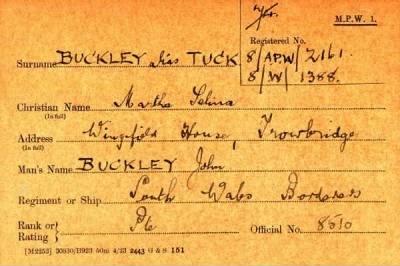 M.P.W. 1.
Registered No.
Surname BUCKLEY alias TUCK
8/APW/2161
8/W/1388.
Christian Name Martha Selina
(In full)
Address Wingfield House, Trowbridge
(In full)
Man's Name BUCKLEY John
Regiment or Ship South Wales Borderers
Rank or Rating } Pte Official No. 8510
[M2253] 30830/H923 50m 4/23 2443 G & S 151